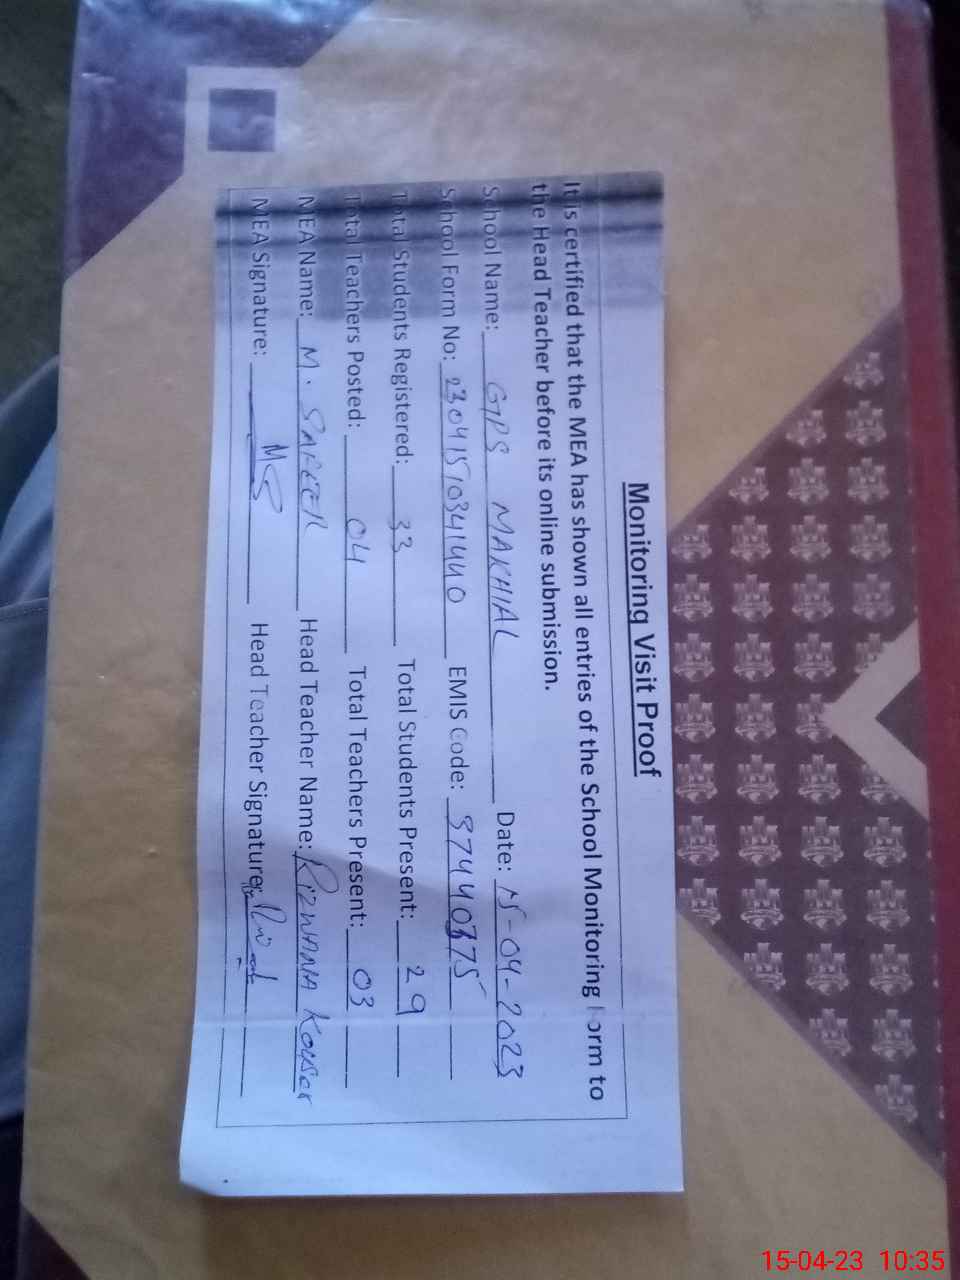 Monitoring Visit Proof
It is certified that the MEA has shown all entries of the School Monitoring Form to
the Head Teacher before its online submission.
School Name: GPS MAKHIAL Date: 15-04-2023
School Form No: 23041510341440 EMIS Code: 37440375
Total Students Registered: 33 Total Students Present: 29
Total Teachers Posted: 04 Total Teachers Present: 03
MEA Name: M. SAFEER Head Teacher Name: Rizwana Kouser
MEA Signature: MS Head Teacher Signature:
15-04-23 10:35